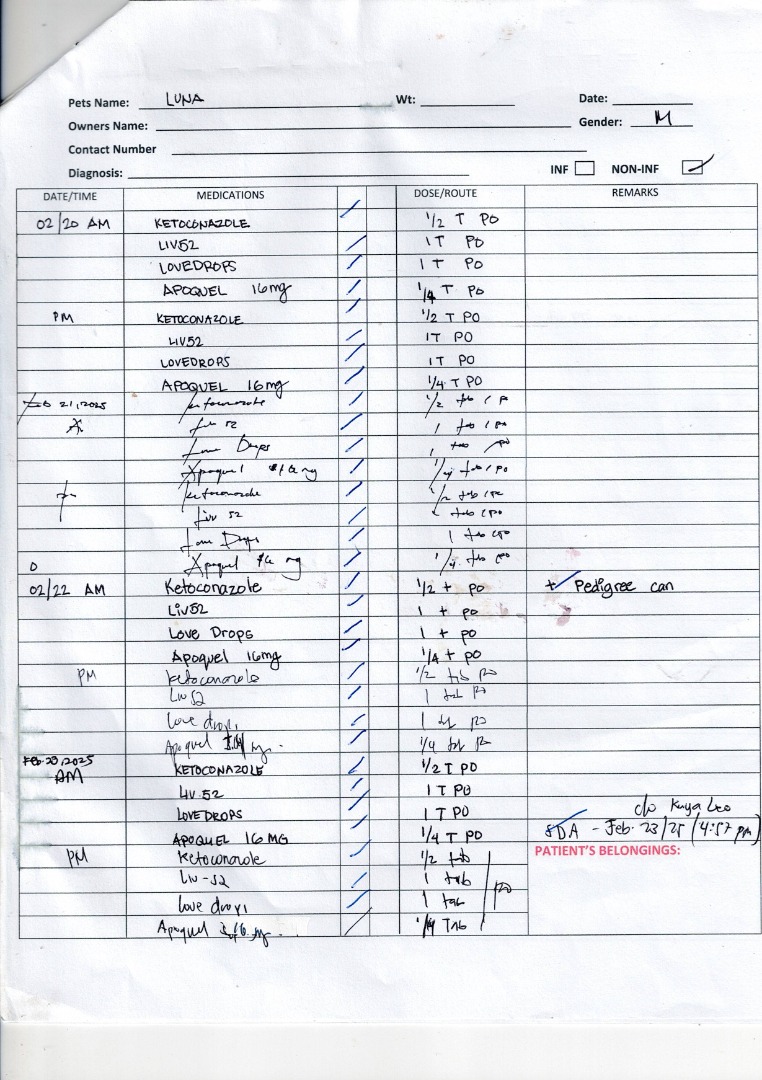 Pets Name: LUNA Wt: Date:
Owners Name: Gender: M
Contact Number
Diagnosis: INF NON-INF
DATE/TIME MEDICATIONS DOSE/ROUTE REMARKS
02/20 AM KETOCONAZOLE 1/2 T PO
LIV52 1 T PO
LOVEDROPS 1 T PO
APOQUEL 16mg 1/4 T PO
PM KETOCONAZOLE 1/2 T PO
LIV52 1T PO
LOVEDROPS 1T PO
APOQUEL 16mg 1/4 T PO
Feb 21, 2025 ketoconazole 1/2 tab / po
Liv 52 1 tab / po
Love Drops 1 tab / po
Apoquel 16 mg 1/4 tab / po
ketoconazole 1/2 tab / po
Liv 52 tab / po
Love Drops 1 tab / po
Apoquel 16 mg 1/4 tab / po
02/22 AM Ketoconazole 1/2 t po + Pedigree can
Liv52 1 t po
Love Drops 1 t po
Apoquel 16mg 1/4 t po
PM ketoconazole 1/2 tab po
Liv 52 1 tab po
love drops 1 tab po
Apoquel mg. 1/4 tab po
Feb. 23, 2025 KETOCONAZOLE 1/2 T PO
AM
LIV.52 1 T PO
LOVEDROPS 1 T PO c/o Kuya Leo
APOQUEL 16 MG 1/4 T PO SDA - Feb. 23/25 (4:57 pm)
PATIENT'S BELONGINGS:
PM ketoconazole 1/2 tab
Liv-52 1 tab po
love drops 1 tab
Apoquel 16 mg. 1/4 Tab